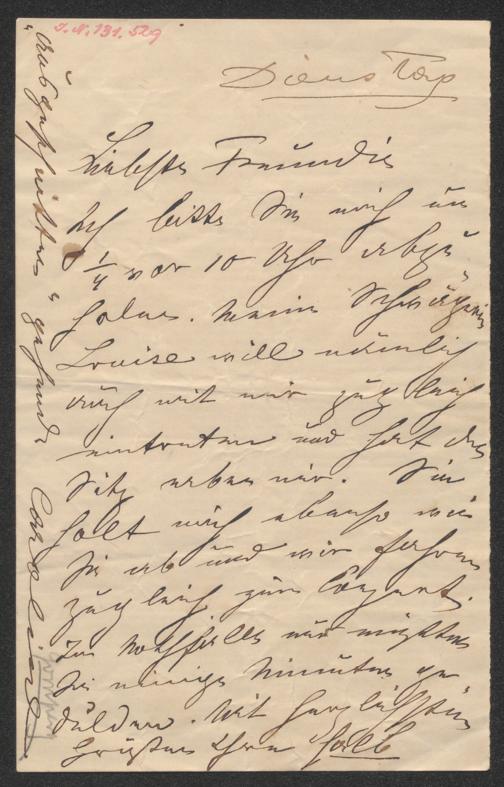 I.N. 131.529
Dienstag
Liebste Freundin
Ich bitte Sie mich um
1/4 vor 10 Uhr abzu„
holen. Meine Schwägerin
Louise will nämlich
auch mit mir zugleich
eintreten und hat den
Sitz neben mir. Sie
holt mich ebenso wie
Sie ab und wir fahren
zugleich zum Conzert.
Im Nothfalle nur möchten
Sie einige Minuten ge„
dulden. Mit herzlichsten
Grüßen Ihre halb
„ gesunde
Caroline